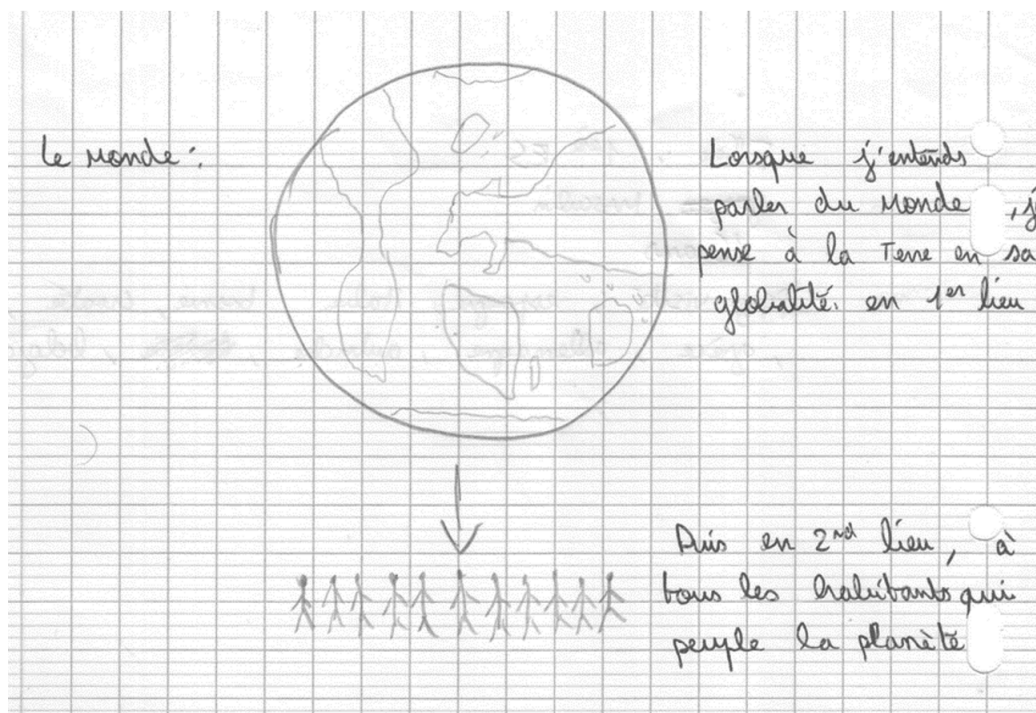 Le Monde :
Lorsque j'entends
parler du Monde, j
pense à la Terre en sa
globalité. en 1er lieu
Puis en 2nd lieu, à
tous les habitants qui
peuple la planète